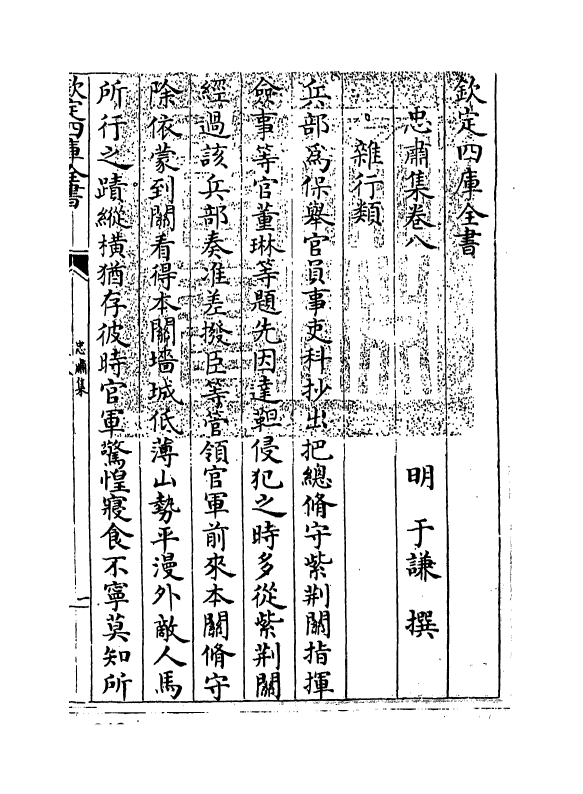 欽定四庫全書
忠肅集卷八
明 于謙 撰
雜行類
兵部為保舉官員事吏科抄出把總脩守紫荆關指揮
僉事等官董琳等題先因達靼侵犯之時多從紫荆關
經過該兵部奏准差撥臣等管領官軍前來本關脩守
除依蒙到關看得本關墻城低薄山勢平漫外敵人馬
所行之蹟縱橫猶存彼時官軍驚惶寢食不寧莫知所
欽定四庫全書
忠肅集